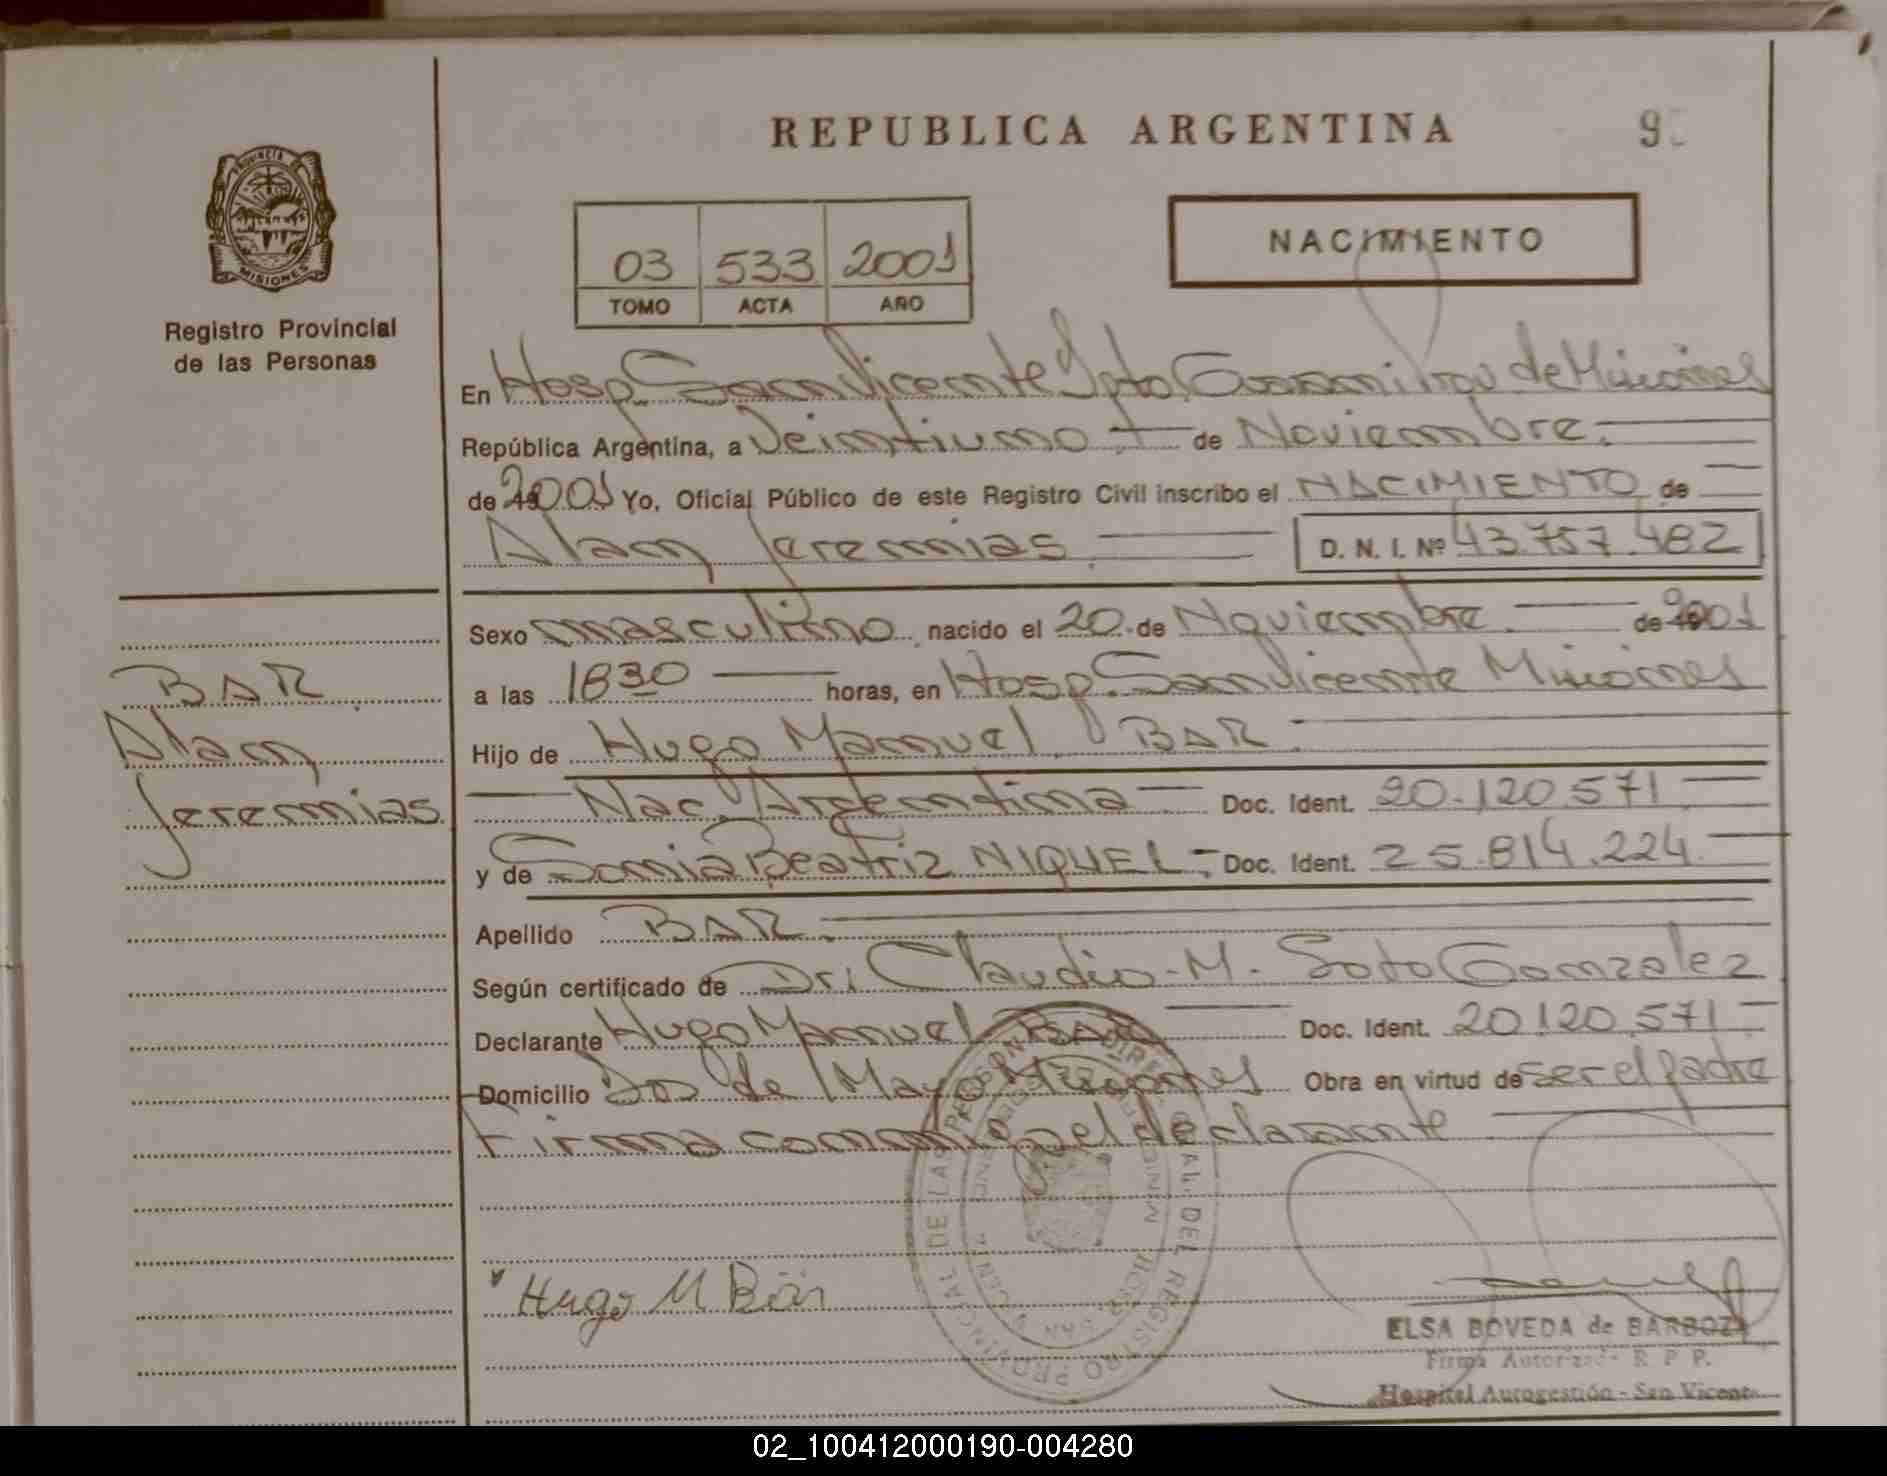 REPUBLICA ARGENTINA
PROVINCIA DE
MISIONES
Registro Provincial
de las Personas
03 533 2001
TOMO ACTA AÑO
NACIMIENTO
En Hosp. San Vicente Dpto Guarani Prov de Misiones
República Argentina, a Veintiuno de Noviembre.
de 2001 Yo, Oficial Público de este Registro Civil inscribo el NACIMIENTO de
Alan Jeremias. D. N. I. Nº 43.757.482
Sexo masculino nacido el 20 de Noviembre de 2001
BAR
a las 1830 horas, en Hosp. San Vicente Misiones
Alan
Hijo de Hugo Manuel BAR.
Jeremias
Nac. Argentina Doc. Ident. 20.120.571
y de Sonia Beatriz NIQUEL Doc. Ident. 25.814.224
Apellido BAR.
Según certificado de Dr. Claudio M. Soto Gonzalez
Declarante Hugo Manuel BAR Doc. Ident. 20.120.571
Domicilio Dos de Mayo Misiones Obra en virtud de ser el padre
Firma conmigo el declarante
Hugo M Bär
ELSA BOVEDA de BARBOZA
Firma Autorizada R P P.
Hospital Autogestión - San Vicente
02_100412000190-004280